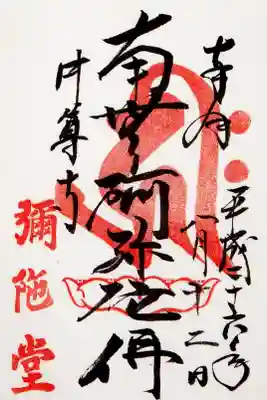 奉拝
平成二十六年
八月十二日
南無阿弥陀佛
中尊寺
彌陀堂